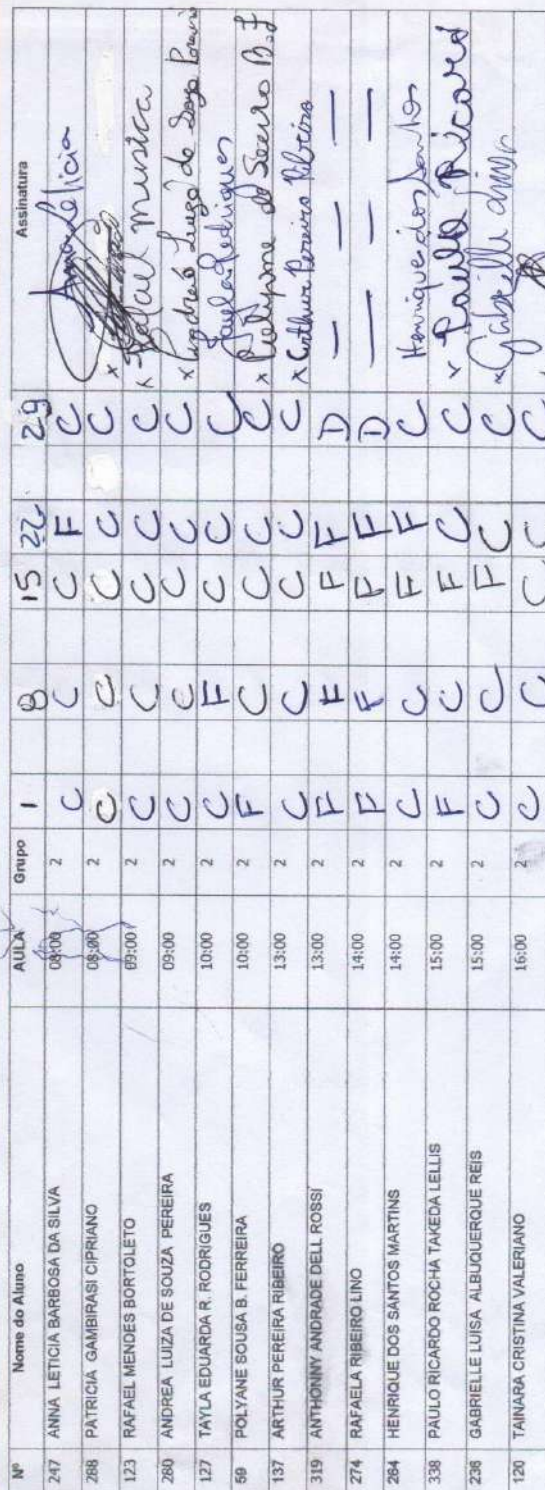 Nº Nome do Aluno AULA Grupo 1 8 15 22 29 Assinatura
247 ANNA LETICIA BARBOSA DA SILVA 08:00 2 C C C F C Anna Leticia
288 PATRICIA GAMBIRASI CIPRIANO 08:00 2 C C C C C x
123 RAFAEL MENDES BORTOLETO 09:00 2 C C C C C x Rafael musica
280 ANDREA LUIZA DE SOUZA PEREIRA 09:00 2 C C C C C x Andreá Luiza de Souza Pereira
127 TAYLA EDUARDA R. RODRIGUES 10:00 2 C F C C C Rodrigues
59 POLYANE SOUSA B. FERREIRA 10:00 2 F C C C C x B.F
137 ARTHUR PEREIRA RIBEIRO 13:00 2 C C C C C x Arthur Pereira Ribeiro
319 ANTHONNY ANDRADE DELL ROSSI 13:00 2 F F F F D — — —
274 RAFAELA RIBEIRO LINO 14:00 2 F F F F D — — —
264 HENRIQUE DOS SANTOS MARTINS 14:00 2 C C F F C Henrique dos Santos
338 PAULO RICARDO ROCHA TAKEDA LELLIS 15:00 2 F C F C C x Paulo Ricard
236 GABRIELLE LUISA ALBUQUERQUE REIS 15:00 2 C C F C C x
120 TAINARA CRISTINA VALERIANO 16:00 2 C C C C C